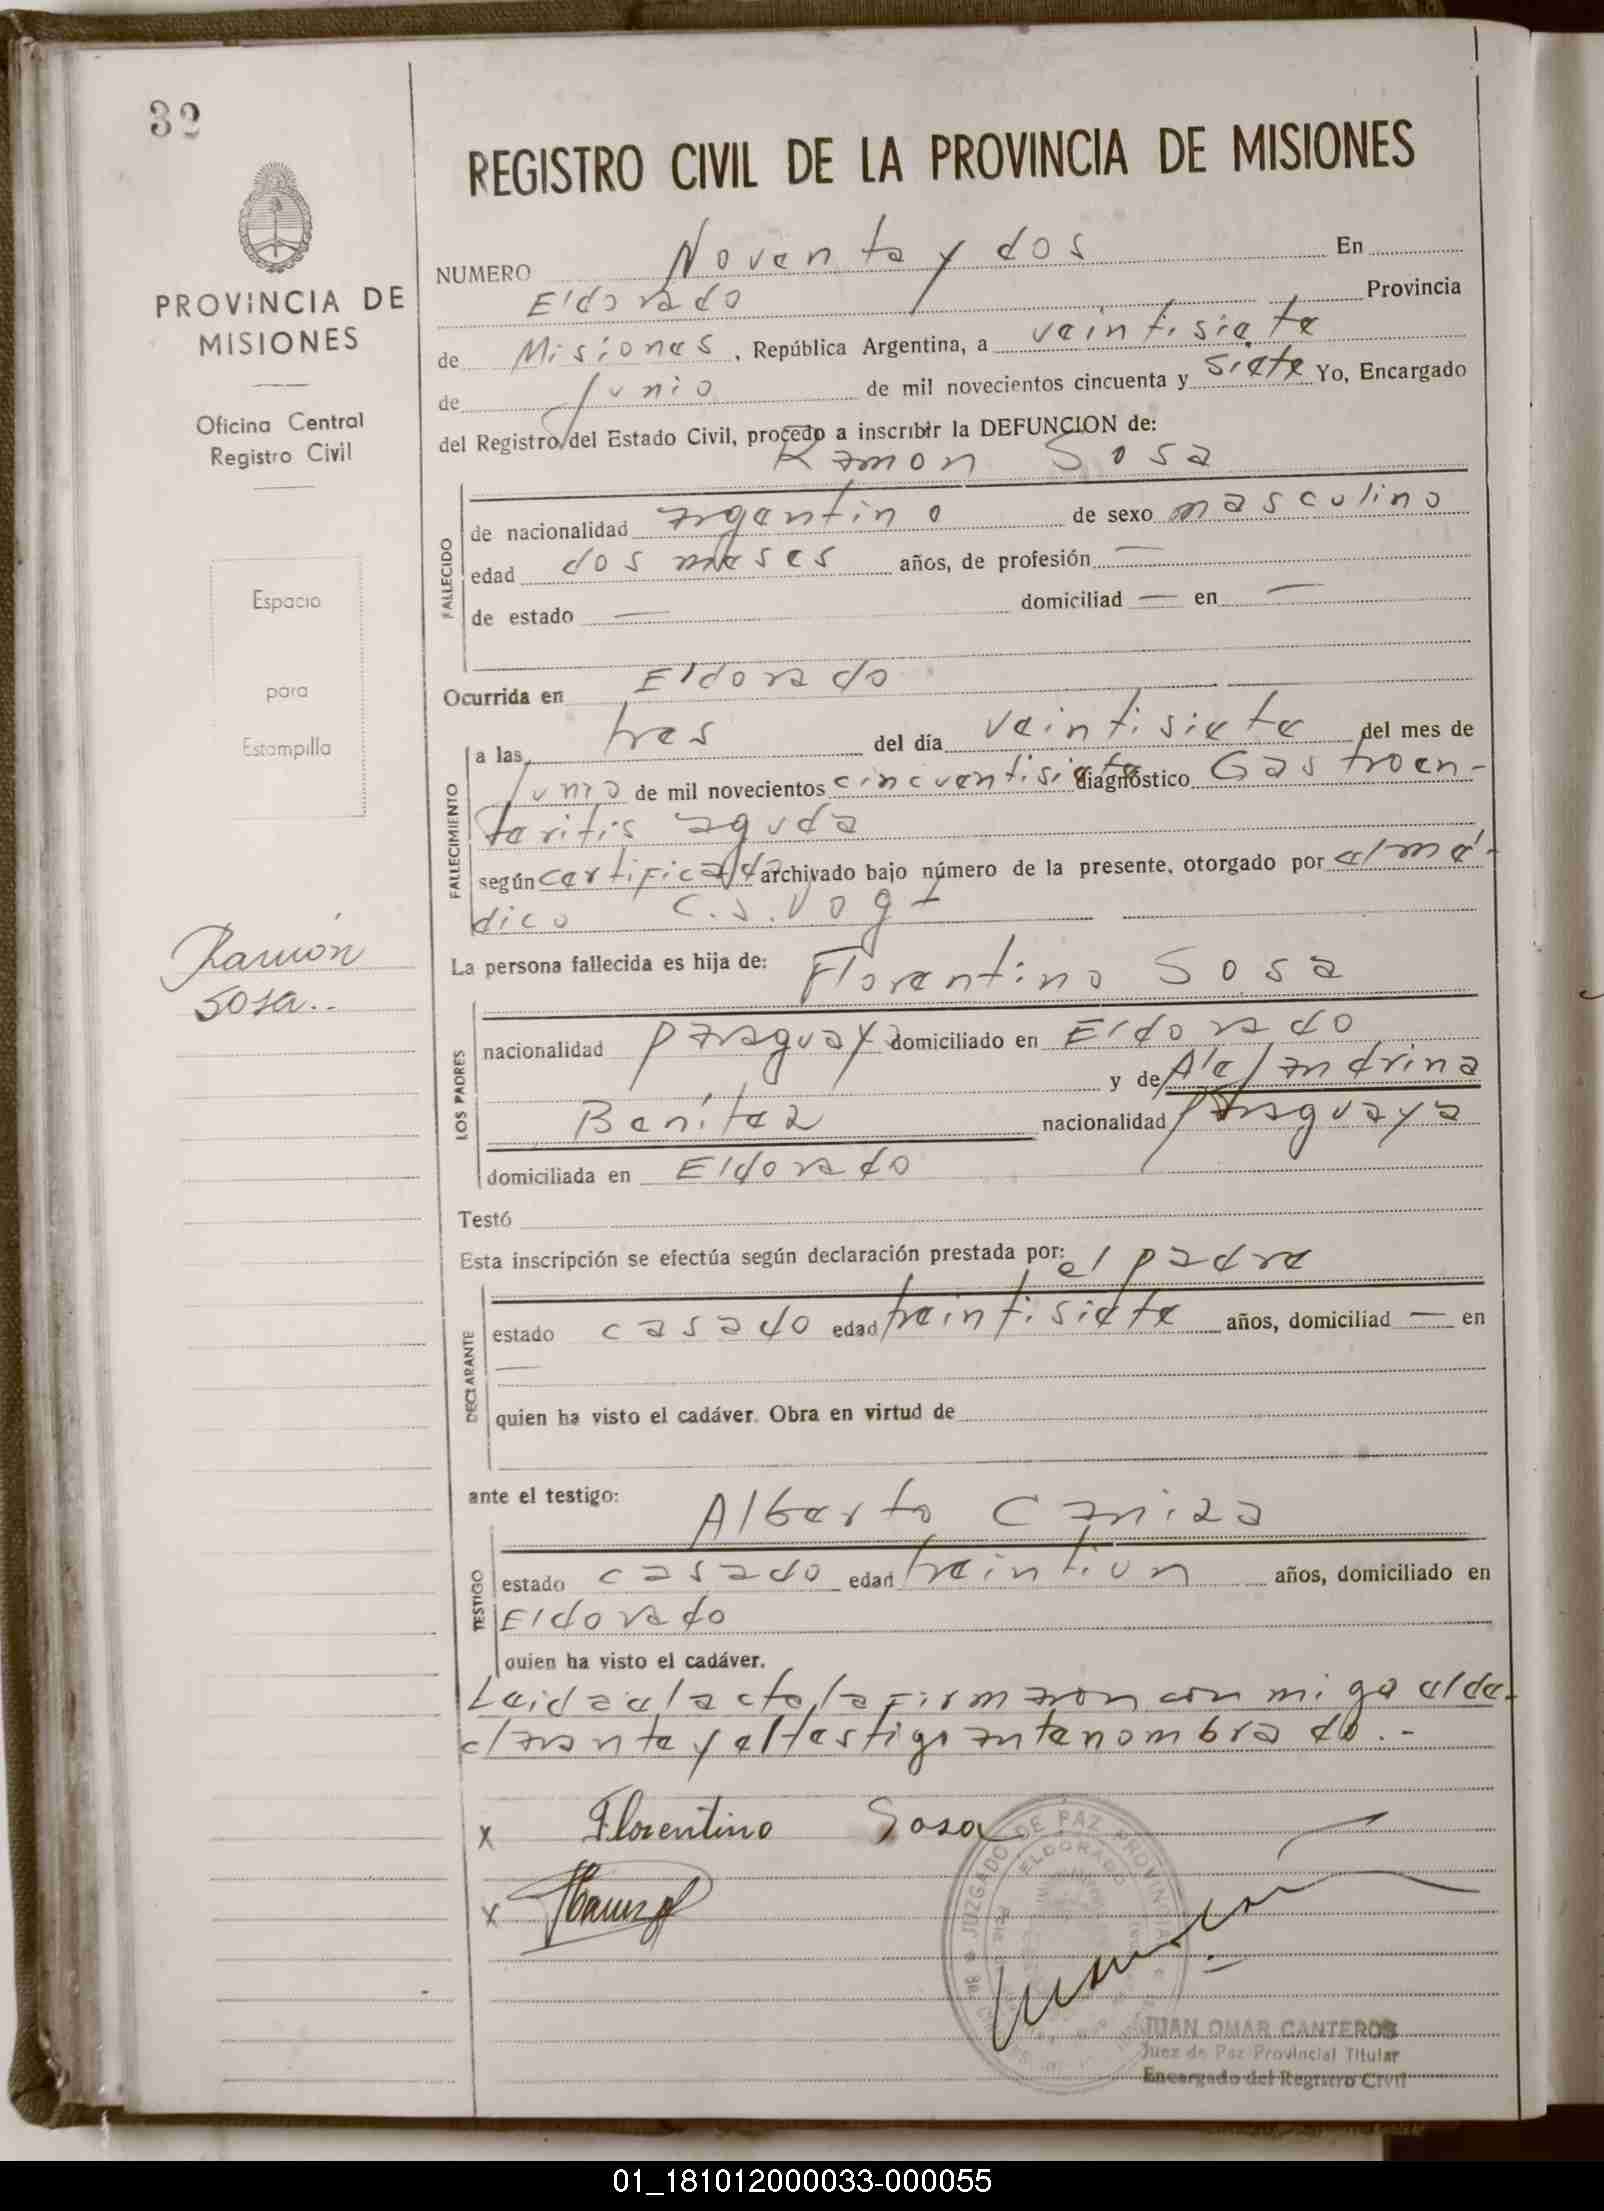 32
PROVINCIA DE
MISIONES
Oficina Central
Registro Civil
Espacio
para
Estampilla
Ramón
Sosa..
REGISTRO CIVIL DE LA PROVINCIA DE MISIONES
NUMERO Noventa y dos En
Eldorado Provincia
de Misiones, República Argentina, a veintisiete
de Junio de mil novecientos cincuenta y siete Yo, Encargado
del Registro del Estado Civil, procedo a inscribir la DEFUNCION de:
Ramon Sosa
FALLECIDO
de nacionalidad argentino de sexo masculino
edad dos meses años, de profesión —
de estado — domiciliad — en —
Ocurrida en Eldorado
FALLECIMIENTO
a las tres del día veintisiete del mes de
Junio de mil novecientos cincuentisiete diagnóstico Gastroen-
teritis aguda
según certificado archivado bajo número de la presente, otorgado por el mé-
dico C.S. Vogt
La persona fallecida es hija de: Florentino Sosa
LOS PADRES
nacionalidad paraguay domiciliado en Eldorado
y de Alejandrina
Benitez nacionalidad paraguaya
domiciliada en Eldorado
Testó
Esta inscripción se efectúa según declaración prestada por: el padre
DECLARANTE
estado casado edad treintisiete años, domiciliad — en
—
quien ha visto el cadáver. Obra en virtud de
ante el testigo:
Alberto Caniza
TESTIGO
estado casado edad treintiun años, domiciliado en
Eldorado
quien ha visto el cadáver.
Leida el acta la firmaron con migo el de-
clarante y el testigo antenombrado.-
x Florentino Sosa
x
JUZGADO DE PAZ PROVINCIAL
ELDORADO
JUAN OMAR CANTEROS
Juez de Paz Provincial Titular
Encargado del Registro Civil
01_181012000033-000055